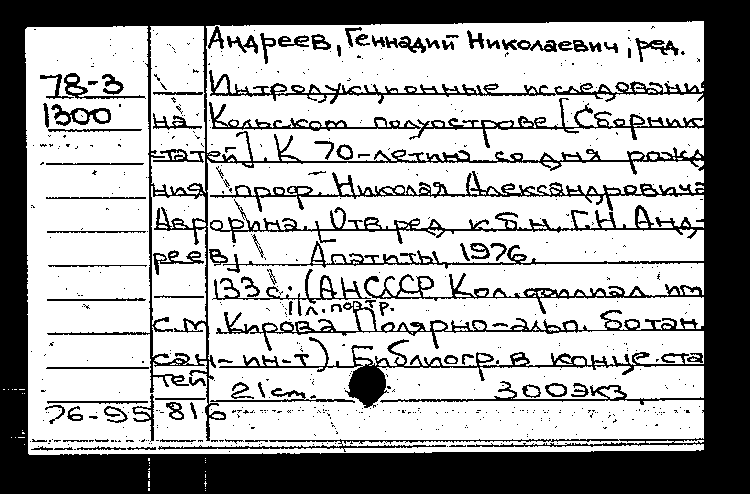 Андреев, Геннадий Николаевич, ред.
78-3 Интродукционные исследования
1300 на Кольском полуострове. [Сборник
статей]. К 70-летию со дня рожд
ния проф. Николая Александровича
Аврорина. [Отв. ред. к.б.н. Г.Н. Анд-
реев]. Апатиты, 1976.
133 с.; (АНСССР Кол. филиал им
11л. портр.
с.м. Кирова. Полярно-альп. ботан.
сад-ин-т). Библиогр. в конце ста
тей 21 см. 300экз.
76-95816